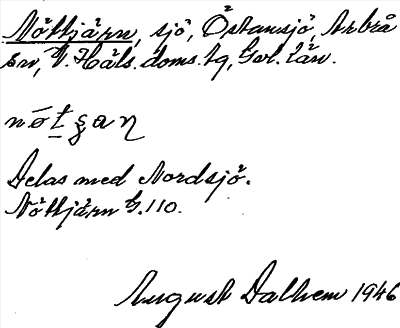 Nöttjärn, sjö, Östansjö, Arbrå
sn, V. Häls. doms. tg, Gvl. län.
Delas med Nordsjö.
Nöttjärn G. 110.
August Dalhem 1946